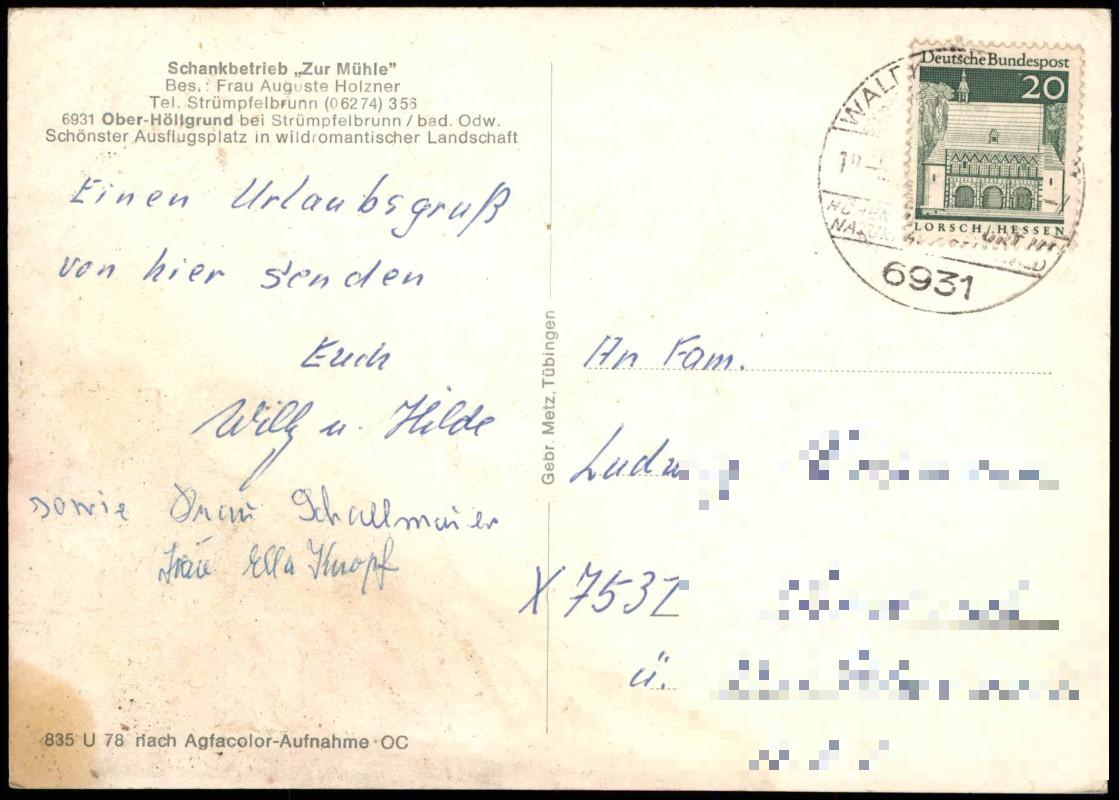 Schankbetrieb „Zur Mühle"
Bes.: Frau Auguste Holzner
Tel. Strümpfelbrunn (06274) 356
6931 Ober-Höllgrund bei Strümpfelbrunn / bad. Odw.
Schönster Ausflugsplatz in wildromantischer Landschaft
Einen Urlaubsgruß
von hier senden
Euch
Willy u. Hilde
sowie Frau Schallmaier
Frau Ella Knopf
835 U 78 nach Agfacolor-Aufnahme · OC
Gebr. Metz, Tübingen
Deutsche Bundespost
20
LORSCH / HESSEN
6931
An Fam.
Ludwig
X 7531
ü.